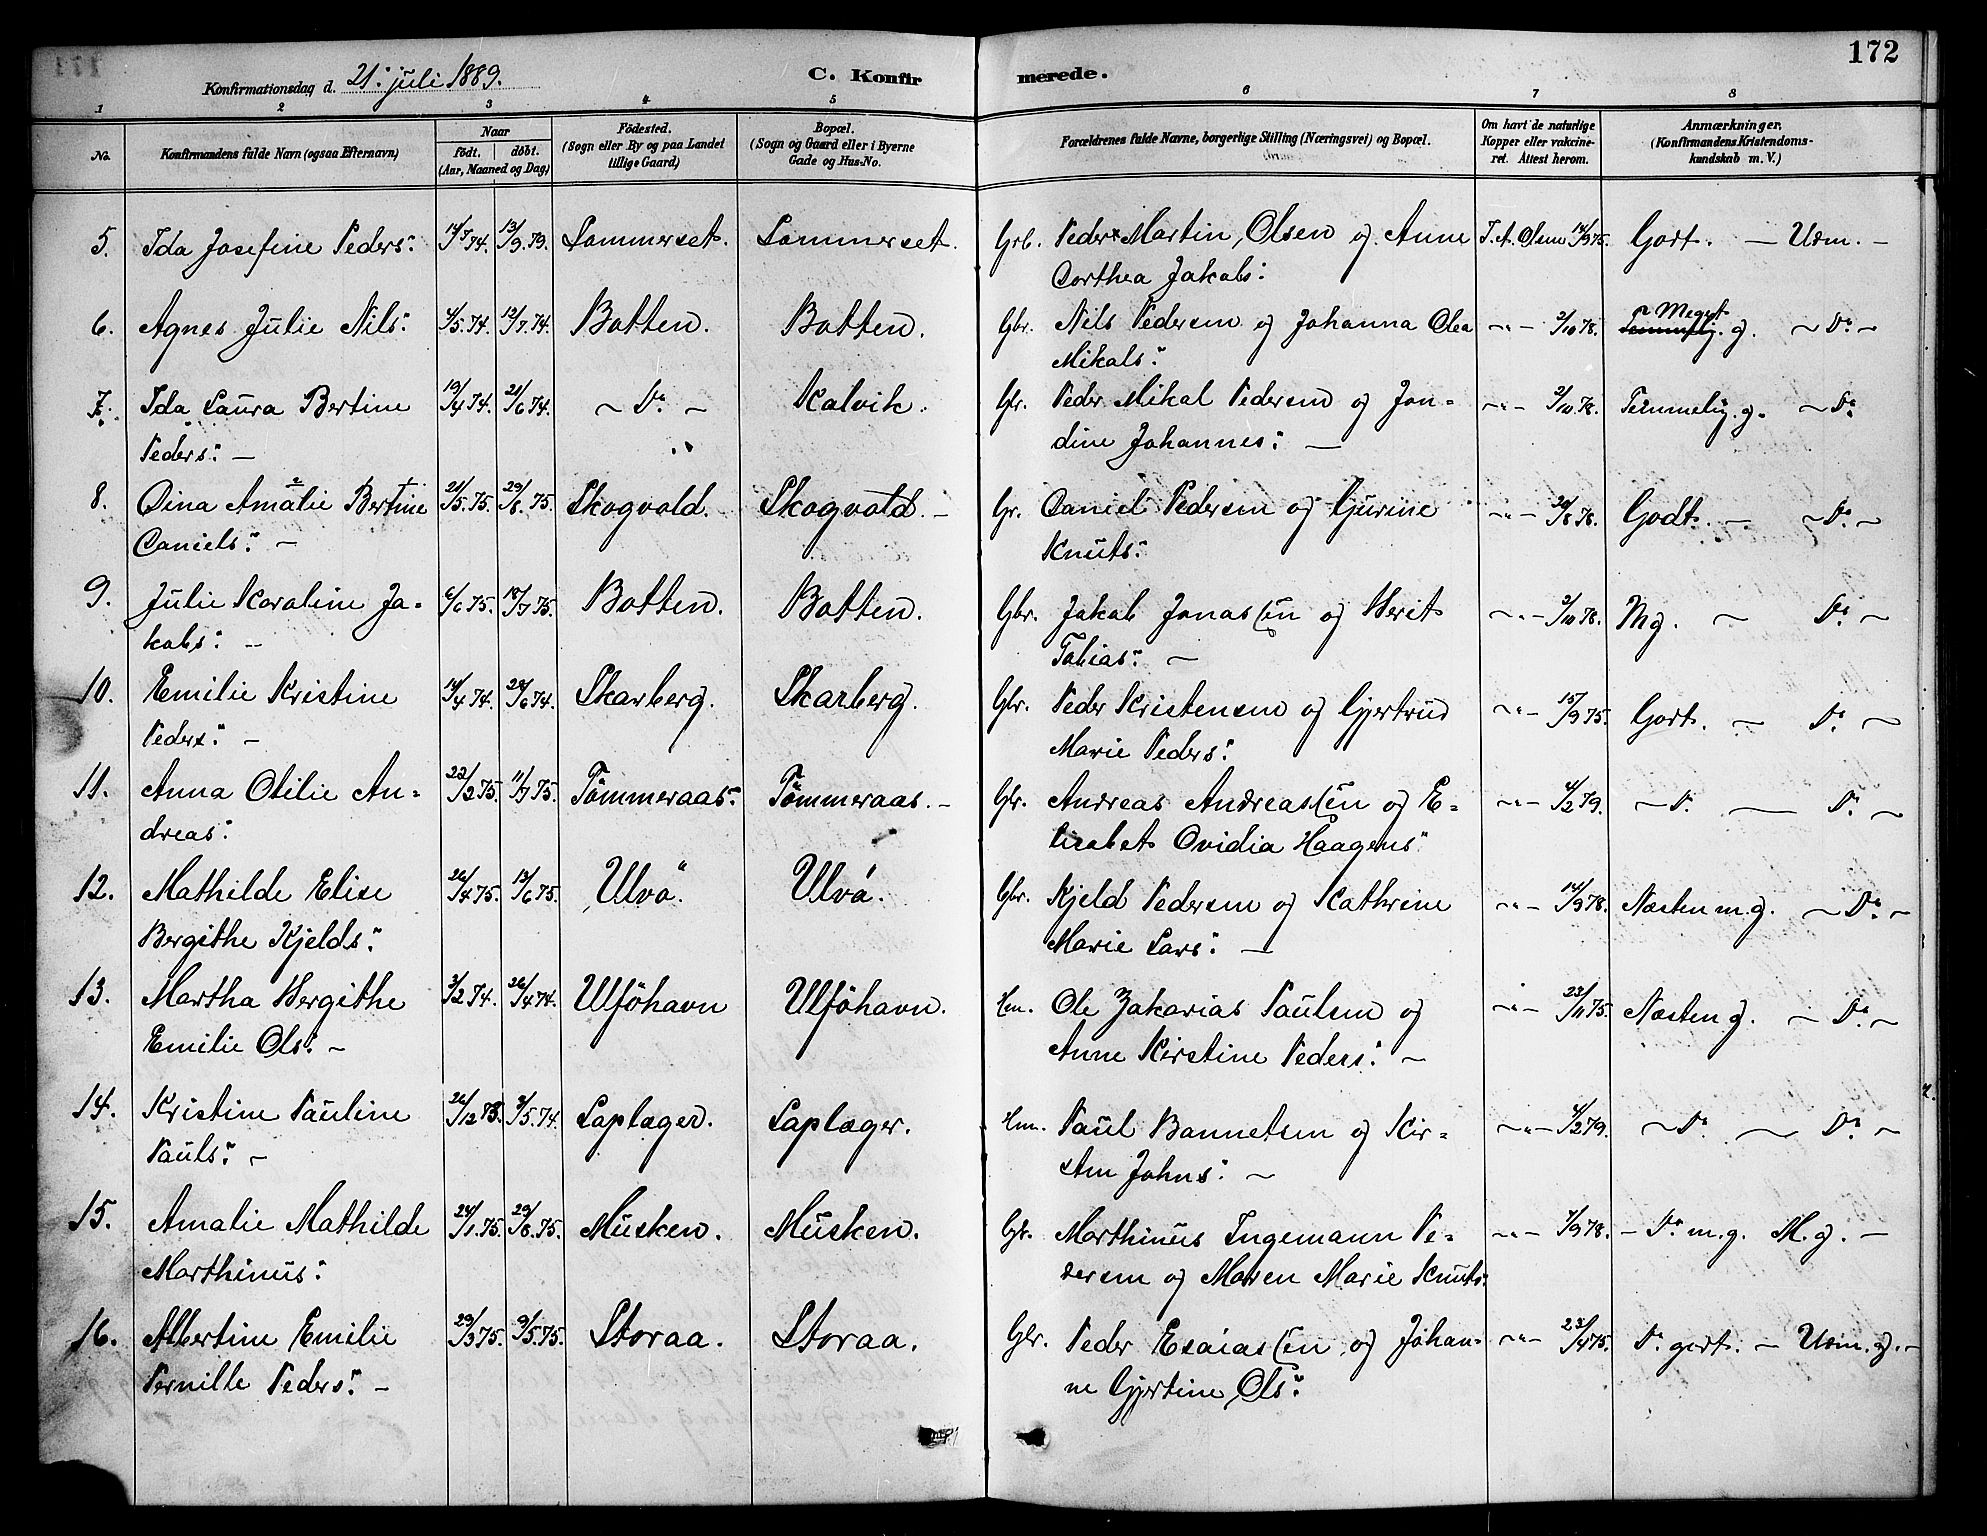 172
Konfirmationsdag d. 21: juli 1889. C. Konfirmerede.
1 2 3 4 5 6 7 8
No. Konfirmandens fulde Navn (ogsaa Efternavn) Naar født. døbt. (Aar, Maaned og Dag) Födested. (Sogn eller By og paa Landet tillige Gaard) Bopæl. (Sogn og Gaard eller i Byerne Gade og Hus-No. Forældrenes fulde Navne, borgerlige Stilling (Næringsvei) og Bopæl. Om havt de naturlige Kopper eller vakcineret. Attest herom. Anmærkninger. (Konfirmandens Kristendomskundskab m. V.)
5. Ida Josefine Peders: 14/7 74. 13/9. 79. Sommerset. Sommerset. Grb. Peder Martin Olsen og Anne J. A. Olsen 14/9 75. Godt. — Udm. —
Dorthea Jakobs:
6. Agnes Julie Nils: 4/5. 74. 12/7. 74. Botten. Botten. Gbr. Nils Pedersen og Johanna Olea -"- 2/10 78. Meget g. ~ Do. ~
Mikals:
7. Ida Laura Bertine 19/4 74. 21/6 74. ~ Do ~ Kalvik. Gbr. Peder Mikal Pedersen og Jon= -"- 2/10 78. Temmelig. g. ~ Do
Peders: — dine Johannes: —
8. Dina Amalie Bertine 21/5. 75. 29/8. 75. Skogvold. Skogvold. — Gr. Daniel Pedersen og Gjurine -"- 20/8 78. Godt. — ~ Do. ~
Daniels: — Knuts:
9. Julie Karoline Ja= 6/6 75. 18/7 75. Botten. Botten. Gbr. Jakob Jonassen og Berit -"- 2/10 78. Mg. ~ Do. ~
kobs: -- Tobias: ~
10. Emilie Kristine 14/4 74. 28/6 74. Skarberg. Skarberg. Gbr. Peder Kristensen og Gjertrud -"- 15/9 75. Godt. ~ Do. ~
Peders: — Marie Peders:
11. Anna Otilie An= 22/2 75. 11/7 75. Tömmeraas: Tömmeraas. — Gbr. Andreas Andreassen og E= -"- 4/2 79. ~ Do. — Do. ~
dreas: lisabet Ovidia Haagens:
12. Mathilde Elise 26/4 75. 13/6 75. Ulvö. Ulvö. Gbr. Kjeld Pedersen og Kathrine -"- 14/9 78. Næsten m. g. ~ Do. ~
Bergithe Kjelds: Marie Lars: —
13. Martha Bergithe 3/2 74. 26/4 74. Ulföhavn Ulföhavn. Hm. Ole Zakarias Paulsen og -"- 23/11 75. Næsten g. ~ Do. ~
Emilie Ols: ~ Anne Kirstine Peders: ~
14. Kristine Pauline 26/12 73. 3/5. 74. Laplæger. Laplæger. Hm. Paul Bannetsen og Kir= -"- 4/2 79. ~ Do. — Do. ~
Pauls: ~ sten Johns: ~
15. Amalie Mathilde 24/1. 75. 29/8. 75. Musken. Musken. Gbr. Marthinus Ingemann Pe= -"- 7/9 78. — Do m. g. M. g. —
Marthinus: dersen og Maren Marie Knuts:
16. Albertine Emilie 29/3 75. 9/5. 75. Storaa. Storaa. Gbr. Peder Esaiassen og Johan= -"- 23/4 75. Do godt. — Udm. g. —
Pernille Peders: — ne Gjertine Ols: